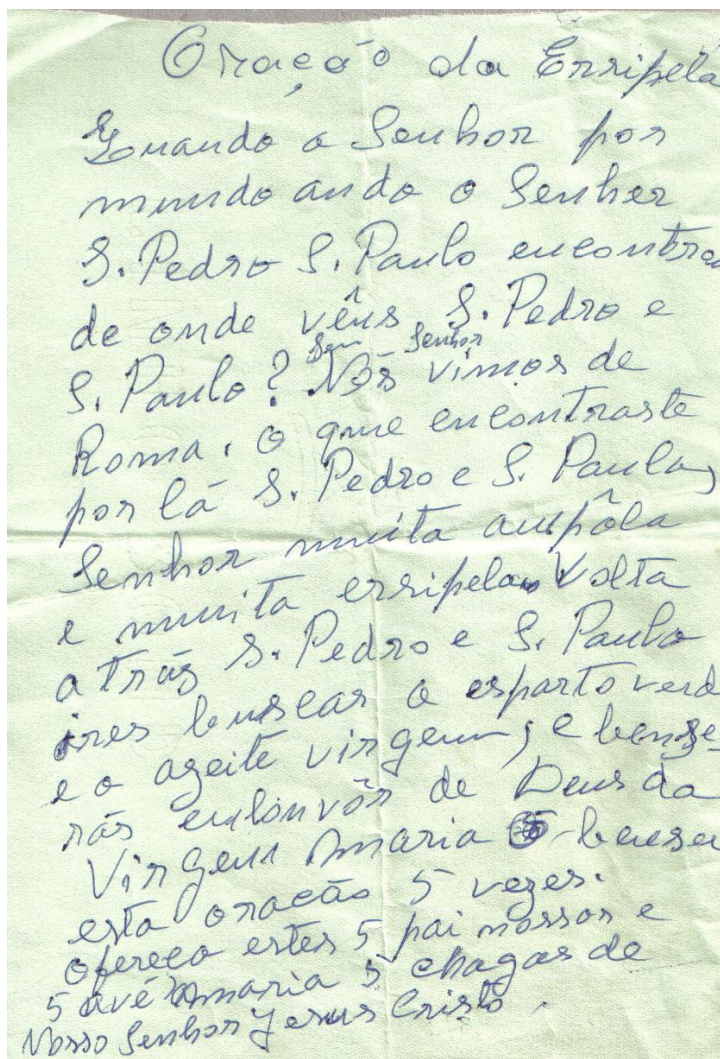 Oração da Erripela
Quando o Senhor por
mundo ando o Senher
S. Pedro S. Paulo encontrou
de onde vêns S. Pedro e
Senhor
S. Paulo? Nós vimos de
Roma. O que encontraste
por lá S. Pedro e S. Paulo,
Senhor muita ampôla
e muita erripela. Volta
atrás S. Pedro e S. Paulo
ires buscar o esparto verd
e o azeite virgem, e benze-
rás em lonvôr de Deus da
Virgem Maria
esta oração 5 vezes.
Ofereço estes 5 pai nossos e
5 avé maria 5 chagas de
Nosso Senhor Jesus Cristo.